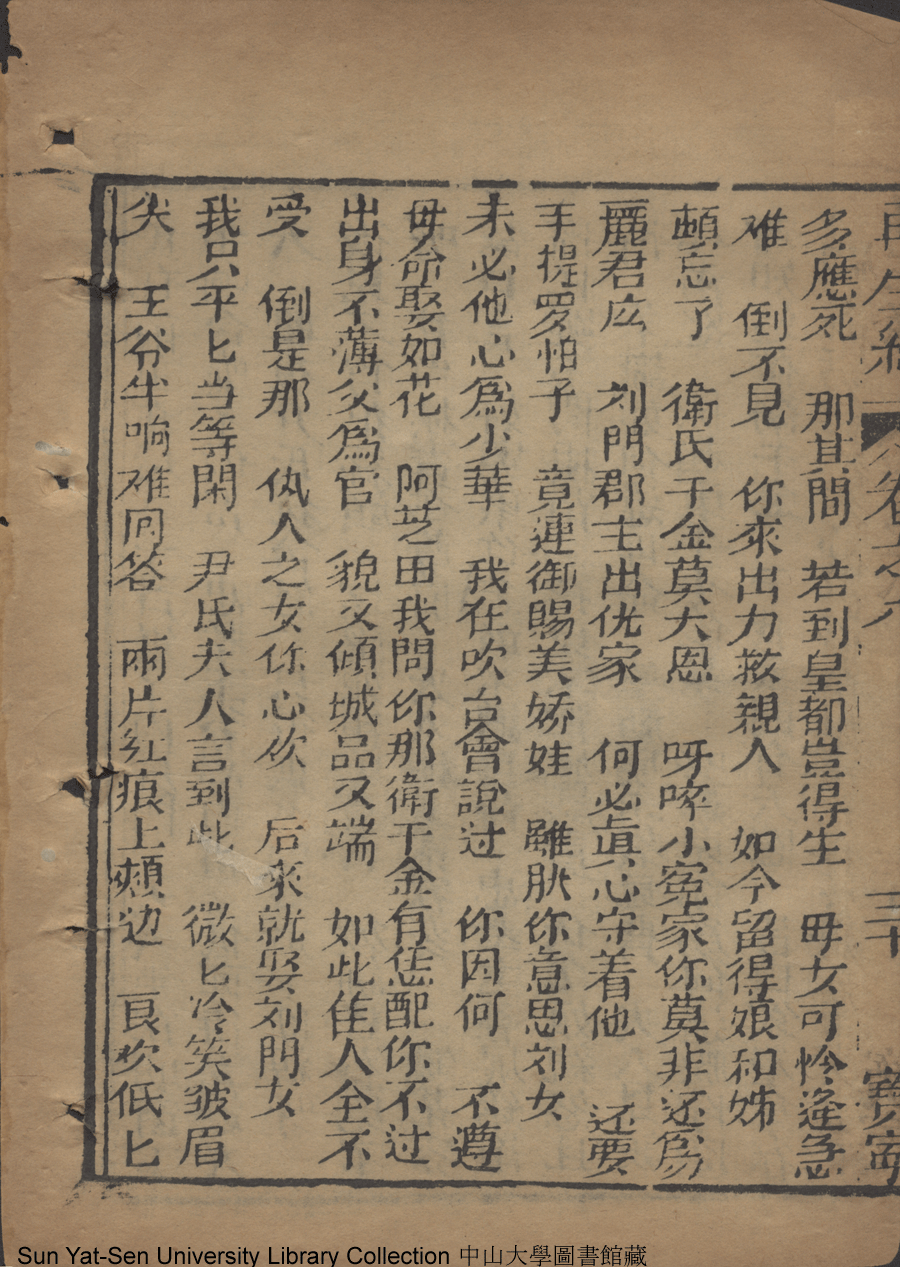 再生緣 卷之八 三十 寶寧
多應死 那其間 若到皇都豈得生 毋女可怜逄急
难 倒不見 你來出力救親人 如今留得娘和姊
頗忘了 衛氏千金莫大恩 呀啐小冤家你莫非还為
麗君庅 刘門郡主出仇家 何必真心守着他 还要
手提罗怕子 竟連御賜美娇娃 雖肰你意思刘女
未必他心爲少華 我在吹台會說过 你因何 不遵
毋命娶如花 阿芝田我問你那衛千金有恁配你不过
出身不薄父爲官 貌又傾城品又端 如此佳人全不
受 倒是那 仇人之女你心欢 后來就娶刘門女
我只平匕当等閑 尹氏夫人言到此 微匕冷笑皺眉
尖 王爷半响难回答 兩片红痕上頰边 良久低匕
Sun Yat-Sen University Library Collection 中山大學圖書館藏